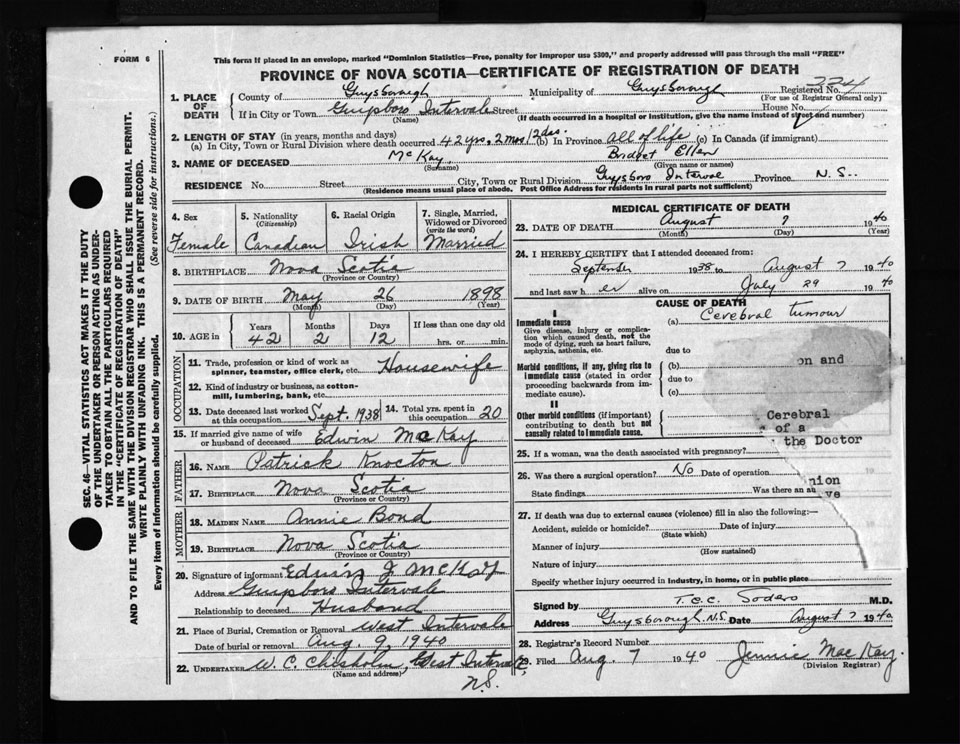 FORM 6
This form if placed in an envelope, marked "Dominion Statistics—Free, penalty for improper use $300," and properly addressed will pass through the mail "FREE"
PROVINCE OF NOVA SCOTIA—CERTIFICATE OF REGISTRATION OF DEATH
Registered No. 224
(For use of Registrar General only)
1. PLACE OF DEATH
County of Guysborough Municipality of Guysborough
If in City or Town Guysboro Intervale Street House No.
(Name) (If death occurred in a hospital or institution, give the name instead of street and number)
2. LENGTH OF STAY (in years, months and days)
(a) In City, Town or Rural Division where death occurred 42 yrs, 2 mos, 12 des. (b) In Province all of life (c) In Canada (if immigrant)
3. NAME OF DECEASED McKay, Bridget Ellen
(Surname) (Given name or names)
RESIDENCE No. Street City, Town or Rural Division Guysboro Interval Province N.S..
(Residence means usual place of abode. Post Office Address for residents in rural parts not sufficient)
4. Sex Female
5. Nationality (Citizenship) Canadian
6. Racial Origin Irish
7. Single, Married, Widowed or Divorced (write the word) Married
8. BIRTHPLACE Nova Scotia
(Province or Country)
9. DATE OF BIRTH May 26 1898
(Month) (Day) (Year)
10. AGE in Years 42 Months 2 Days 12 If less than one day old hrs. or min.
OCCUPATION
11. Trade, profession or kind of work as spinner, teamster, office clerk, etc. Housewife
12. Kind of industry or business, as cotton-mill, lumbering, bank, etc.
13. Date deceased last worked at this occupation Sept. 1938
14. Total yrs. spent in this occupation 20
15. If married give name of wife or husband of deceased Edwin MacKay
FATHER
16. NAME Patrick Knocton
17. BIRTHPLACE Nova Scotia
(Province or Country)
MOTHER
18. MAIDEN NAME Annie Bond
19. BIRTHPLACE Nova Scotia
(Province or Country)
20. Signature of informant Edwin J McKay
Address Guysboro Intervale
Relationship to deceased Husband
21. Place of Burial, Cremation or Removal West Intervale
Date of burial or removal Aug. 9, 1940
22. UNDERTAKER W. C. Chisholm, West Intervale, N.S.
(Name and address)
MEDICAL CERTIFICATE OF DEATH
23. DATE OF DEATH August 7 1940
(Month) (Day) (Year)
24. I HEREBY CERTIFY that I attended deceased from:
September 1938 to August 7 1940
and last saw her alive on July 29 1940
CAUSE OF DEATH
I
Immediate cause
Give disease, injury or complication which caused death, not the mode of dying, such as heart failure, asphyxia, asthenia, etc.
(a) Cerebral tumour
due to
Morbid conditions, if any, giving rise to Immediate cause (stated in order proceeding backwards from immediate cause).
(b)
due to
(c)
II
Other morbid conditions (if important) contributing to death but not causally related to Immediate cause.
on and
Cerebral
of a
the Doctor
nion
ve
25. If a woman, was the death associated with pregnancy?
26. Was there a surgical operation? No Date of operation
State findings Was there an au
27. If death was due to external causes (violence) fill in also the following:—
Accident, suicide or homicide? Date of injury
(State which)
Manner of injury
(How sustained)
Nature of injury
Specify whether injury occurred in industry, in home, or in public place
Signed by T.C.C. Sodero M.D.
Address Guysborough. N.S. Date August 7 1940
28. Registrar's Record Number
29. Filed Aug. 7 1940 Jennie MacKay.
(Division Registrar)
SEC. 46—VITAL STATISTICS ACT MAKES IT THE DUTY
OF THE UNDERTAKER OR PERSON ACTING AS UNDER-
TAKER TO OBTAIN ALL THE PARTICULARS REQUIRED
IN THE "CERTIFICATE OF REGISTRATION OF DEATH"
AND TO FILE THE SAME WITH THE DIVISION REGISTRAR WHO SHALL ISSUE THE BURIAL PERMIT.
WRITE PLAINLY WITH UNFADING INK. THIS IS A PERMANENT RECORD.
Every item of Information should be carefully supplied. (See reverse side for instructions.)